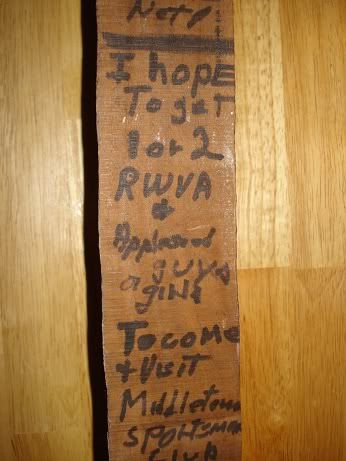 Note
I hope
To get
1 or 2
RWVA
&
Appleseed
guys
a gins
To come
+ VISIT
Middletown
SPORTSMAN
CLUB